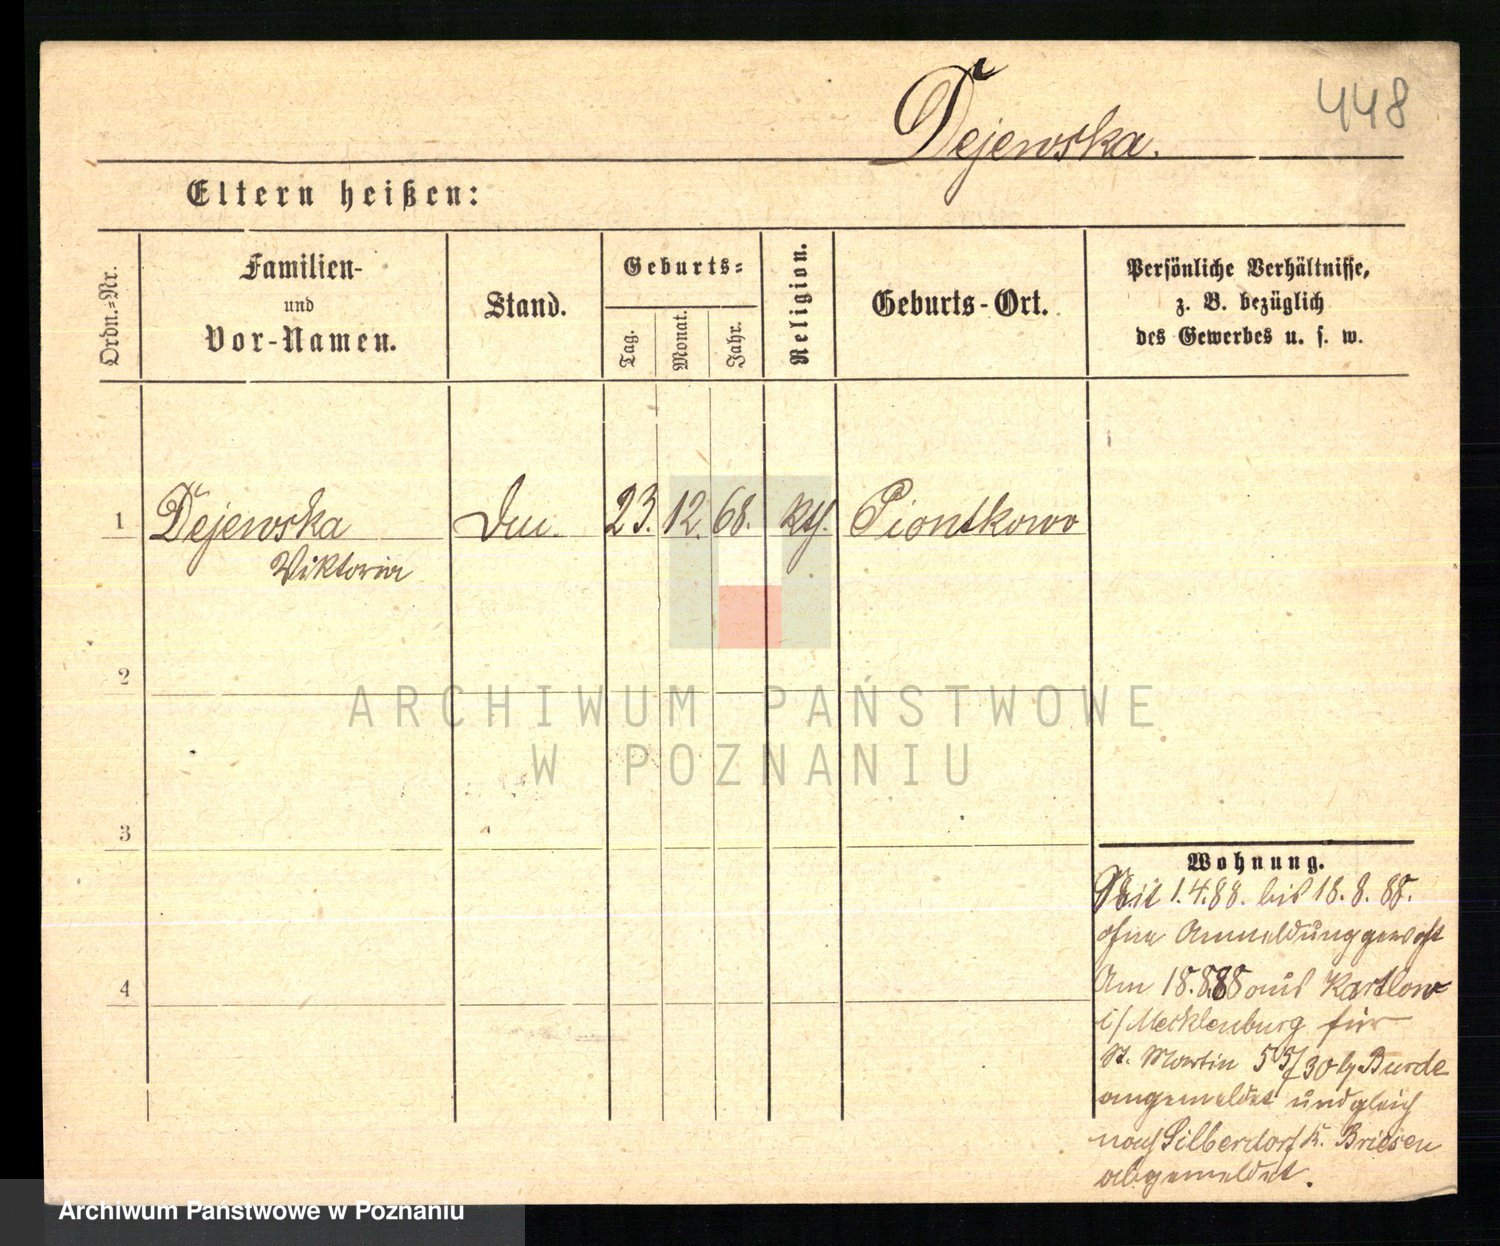 448
Dejewska.
Eltern heißen:
Ordn.-Nr.
Familien-
und
Vor-Namen.
Stand.
Geburts-
Tag.
Monat.
Jahr.
Religion.
Geburts-Ort.
Persönliche Verhältnisse,
z. B. bezüglich
des Gewerbes u. s. w.
1 Dejewska 23. 12. 68. kth. Piontkowo
Viktoria
2
3
4
Wohnung.
Seit 1.4.88. bis 18.8.88.
ohne Anmeldung
Am 18.8.88 aus Kartlow
i/Mecklenburg für
St. Martin 55/30 b/Burde
angemeldet und gleich
nach Silberdorf K. Briesen
abgemeldet.
ARCHIWUM PAŃSTWOWE
W POZNANIU
Archiwum Państwowe w Poznaniu